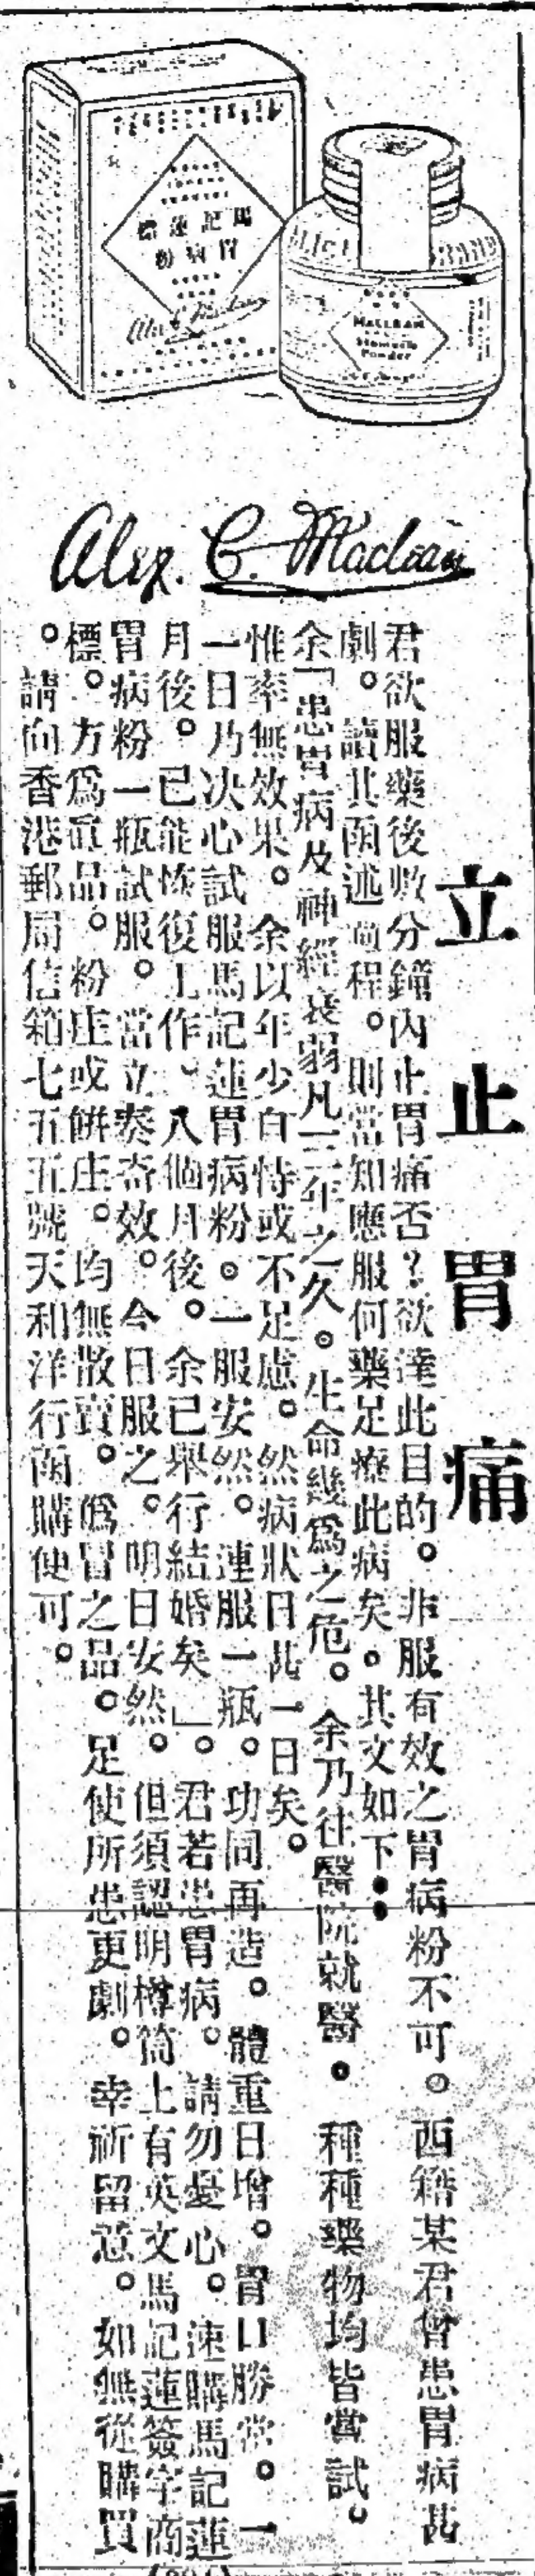 馬記蓮標
胃病粉
Alex C Maclean
BRAND
MACLEAN
Stomach
Powder
Alex. C. Maclean
立止胃痛
君欲服藥後數分鐘內止胃痛否?欲達此目的。非服有效之胃病粉不可。西籍某君曾患胃病甚
劇。讀其函述過程。則當知應服何藥足療此病矣。其文如下:
余「患胃病及神經衰弱凡三年之久。生命幾爲之危。余乃往醫院就醫。種種藥物均皆嘗試。
惟率無效果。余以年少自恃或不足慮。然病狀日甚一日矣。
一日乃决心試服馬記蓮胃病粉。一服安然。連服一瓶。功同再造。體重日增。胃口勝常。一
月後。已能恢復工作。八個月後。余已舉行結婚矣」。君若患胃病。請勿憂心。速購馬記蓮
胃病粉一瓶試服。當立奏奇效。今日服之。明日安然。但須認明樽筒上有英文馬記蓮簽字商
標。方爲眞品。粉庄或餅庄。均無散賣。僞冒之品。足使所患更劇。幸祈留意。如無從購買
。請向香港郵局信箱七五五號天和洋行函購便可。